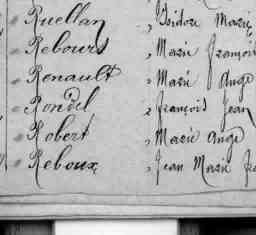 Ruellan , Isidore Marie
Rebours , Marie François
Renault , Marie Ange
Rondel , François Jean
Robert , Marie Ange
Reboux , Jean Marie